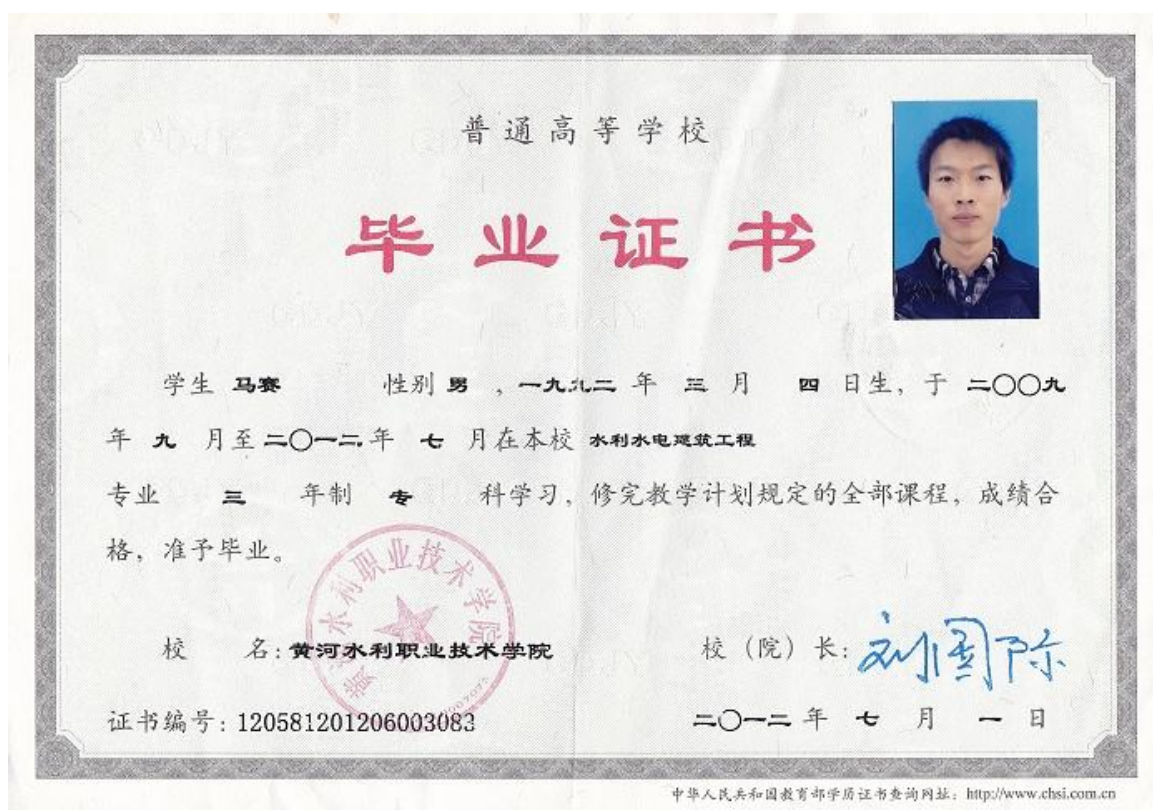 普通高等学校
毕业证书
学生 马赛 性别 男 ，一九九二 年 三 月 四 日生，于 二〇〇九
年 九 月至 二〇一二 年 七 月在本校 水利水电建筑工程
专业 三 年制 专 科学习，修完教学计划规定的全部课程，成绩合
格，准予毕业。
黄河水利职业技术学院
校 名：黄河水利职业技术学院 校（院）长：刘国际
证书编号：120581201206003083 二〇一二 年 七 月 一 日
中华人民共和国教育部学历证书查询网址：http://www.chsi.com.cn